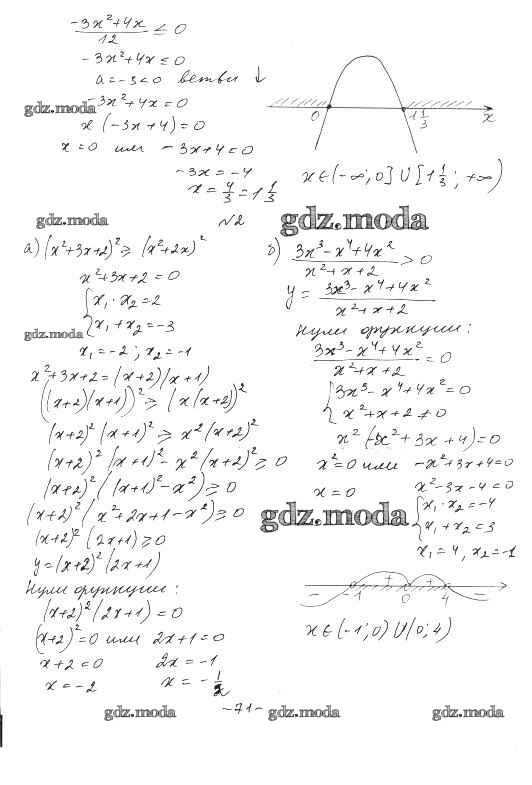 -3x²+4x / 12 ≤ 0
-3x²+4x ≤ 0
a=-3<0 ветви ↓
-3x²+4x=0
x(-3x+4)=0
x=0 или -3x+4=0
-3x=-4
x=4/3=1 1/3
0 1 1/3 x
x∈(-∞;0]∪[1 1/3;+∞)
gdz.moda
gdz.moda
gdz.moda
№2
а) (x²+3x+2)² ≥ (x²+2x)²
x²+3x+2=0
{x₁·x₂=2
{x₁+x₂=-3
gdz.moda
x₁=-2; x₂=-1
x²+3x+2=(x+2)(x+1)
((x+2)(x+1))² ≥ (x(x+2))²
(x+2)²(x+1)² ≥ x²(x+2)²
(x+2)²(x+1)²-x²(x+2)² ≥ 0
(x+2)²((x+1)²-x²) ≥ 0
(x+2)²(x²+2x+1-x²) ≥ 0
(x+2)²(2x+1) ≥ 0
y=(x+2)²(2x+1)
Нули функции:
(x+2)²(2x+1)=0
(x+2)²=0 или 2x+1=0
x+2=0 2x=-1
x=-2 x=-1/2
б) 3x³-x⁴+4x² / x²+x+2 > 0
y= 3x³-x⁴+4x² / x²+x+2
Нули функции:
3x³-x⁴+4x² / x²+x+2 = 0
{3x³-x⁴+4x²=0
{x²+x+2≠0
x²(-x²+3x+4)=0
x²=0 или -x²+3x+4=0
x=0 x²-3x-4=0
gdz.moda
{x₁·x₂=-4
{x₁+x₂=3
x₁=4, x₂=-1
- + + -
-1 0 4
x∈(-1;0)∪(0;4)
-71-
gdz.moda gdz.moda gdz.moda